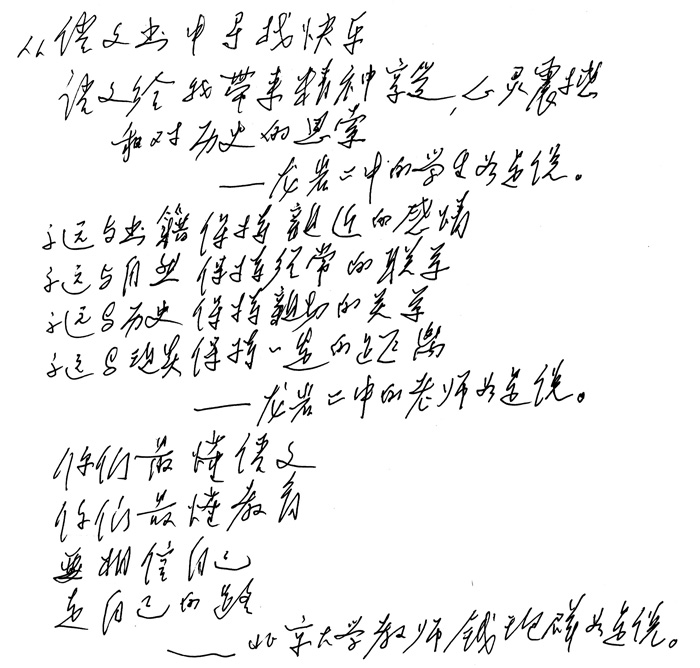 从读文出中寻找快乐
读文给我带来精神享受,心灵震撼
和对历史的思索
——龙岩二中的学生如是说。
永远与书籍保持亲近的感情
永远与自然保持经常的联系
永远与历史保持亲切的关系
永远与现实保持一定的距离
——龙岩二中的老师如是说。
你们最懂语文
你们最懂教育
要相信自己
走自己的路
——北京大学教师钱理群如是说。